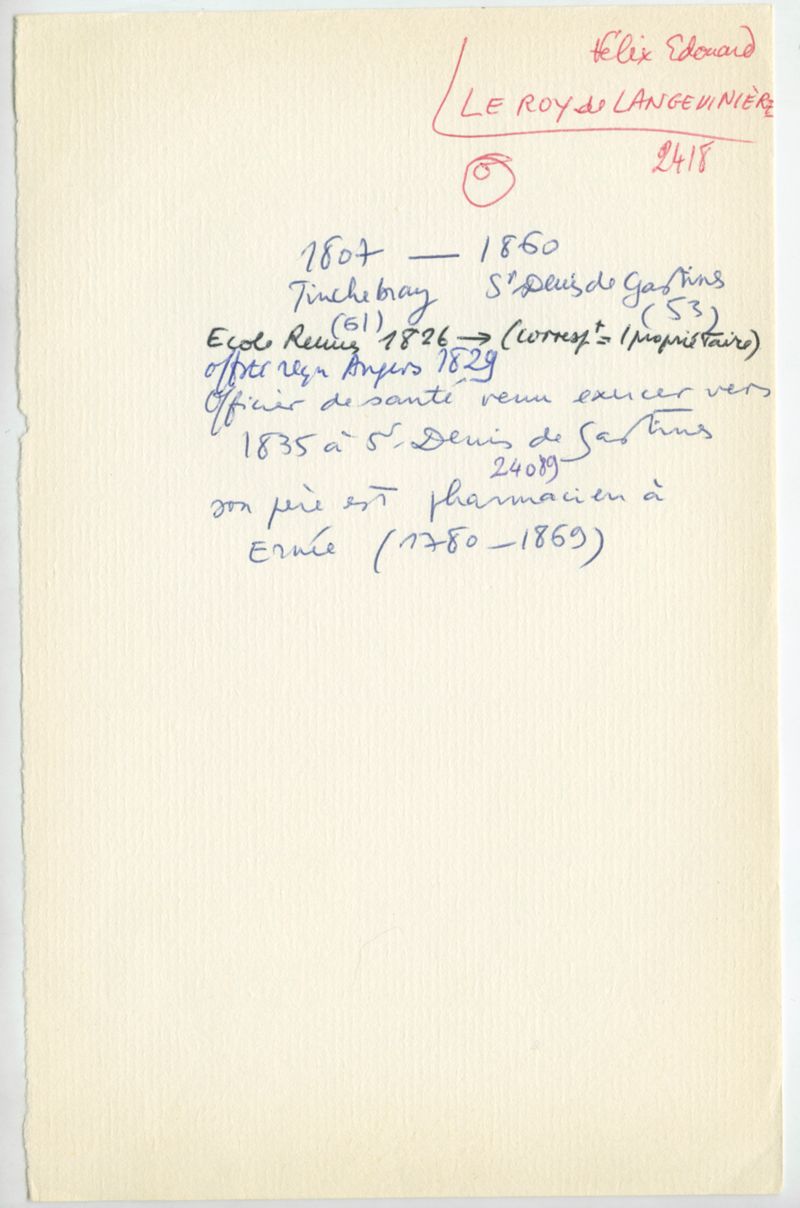 Félix Edouard
LE ROY de LANGEVINIÈRE
2418
1807 — 1860
Tinchebray St Denis de Gastines
(61) (53)
Ecole Rennes 1826 → (correspt = 1 propriétaire)
offste reçu Angers 1829
Officier de santé venu exercer vers
1835 à St Denis de Gastines
24089
son père est pharmacien à
Ernée (1780 – 1869)